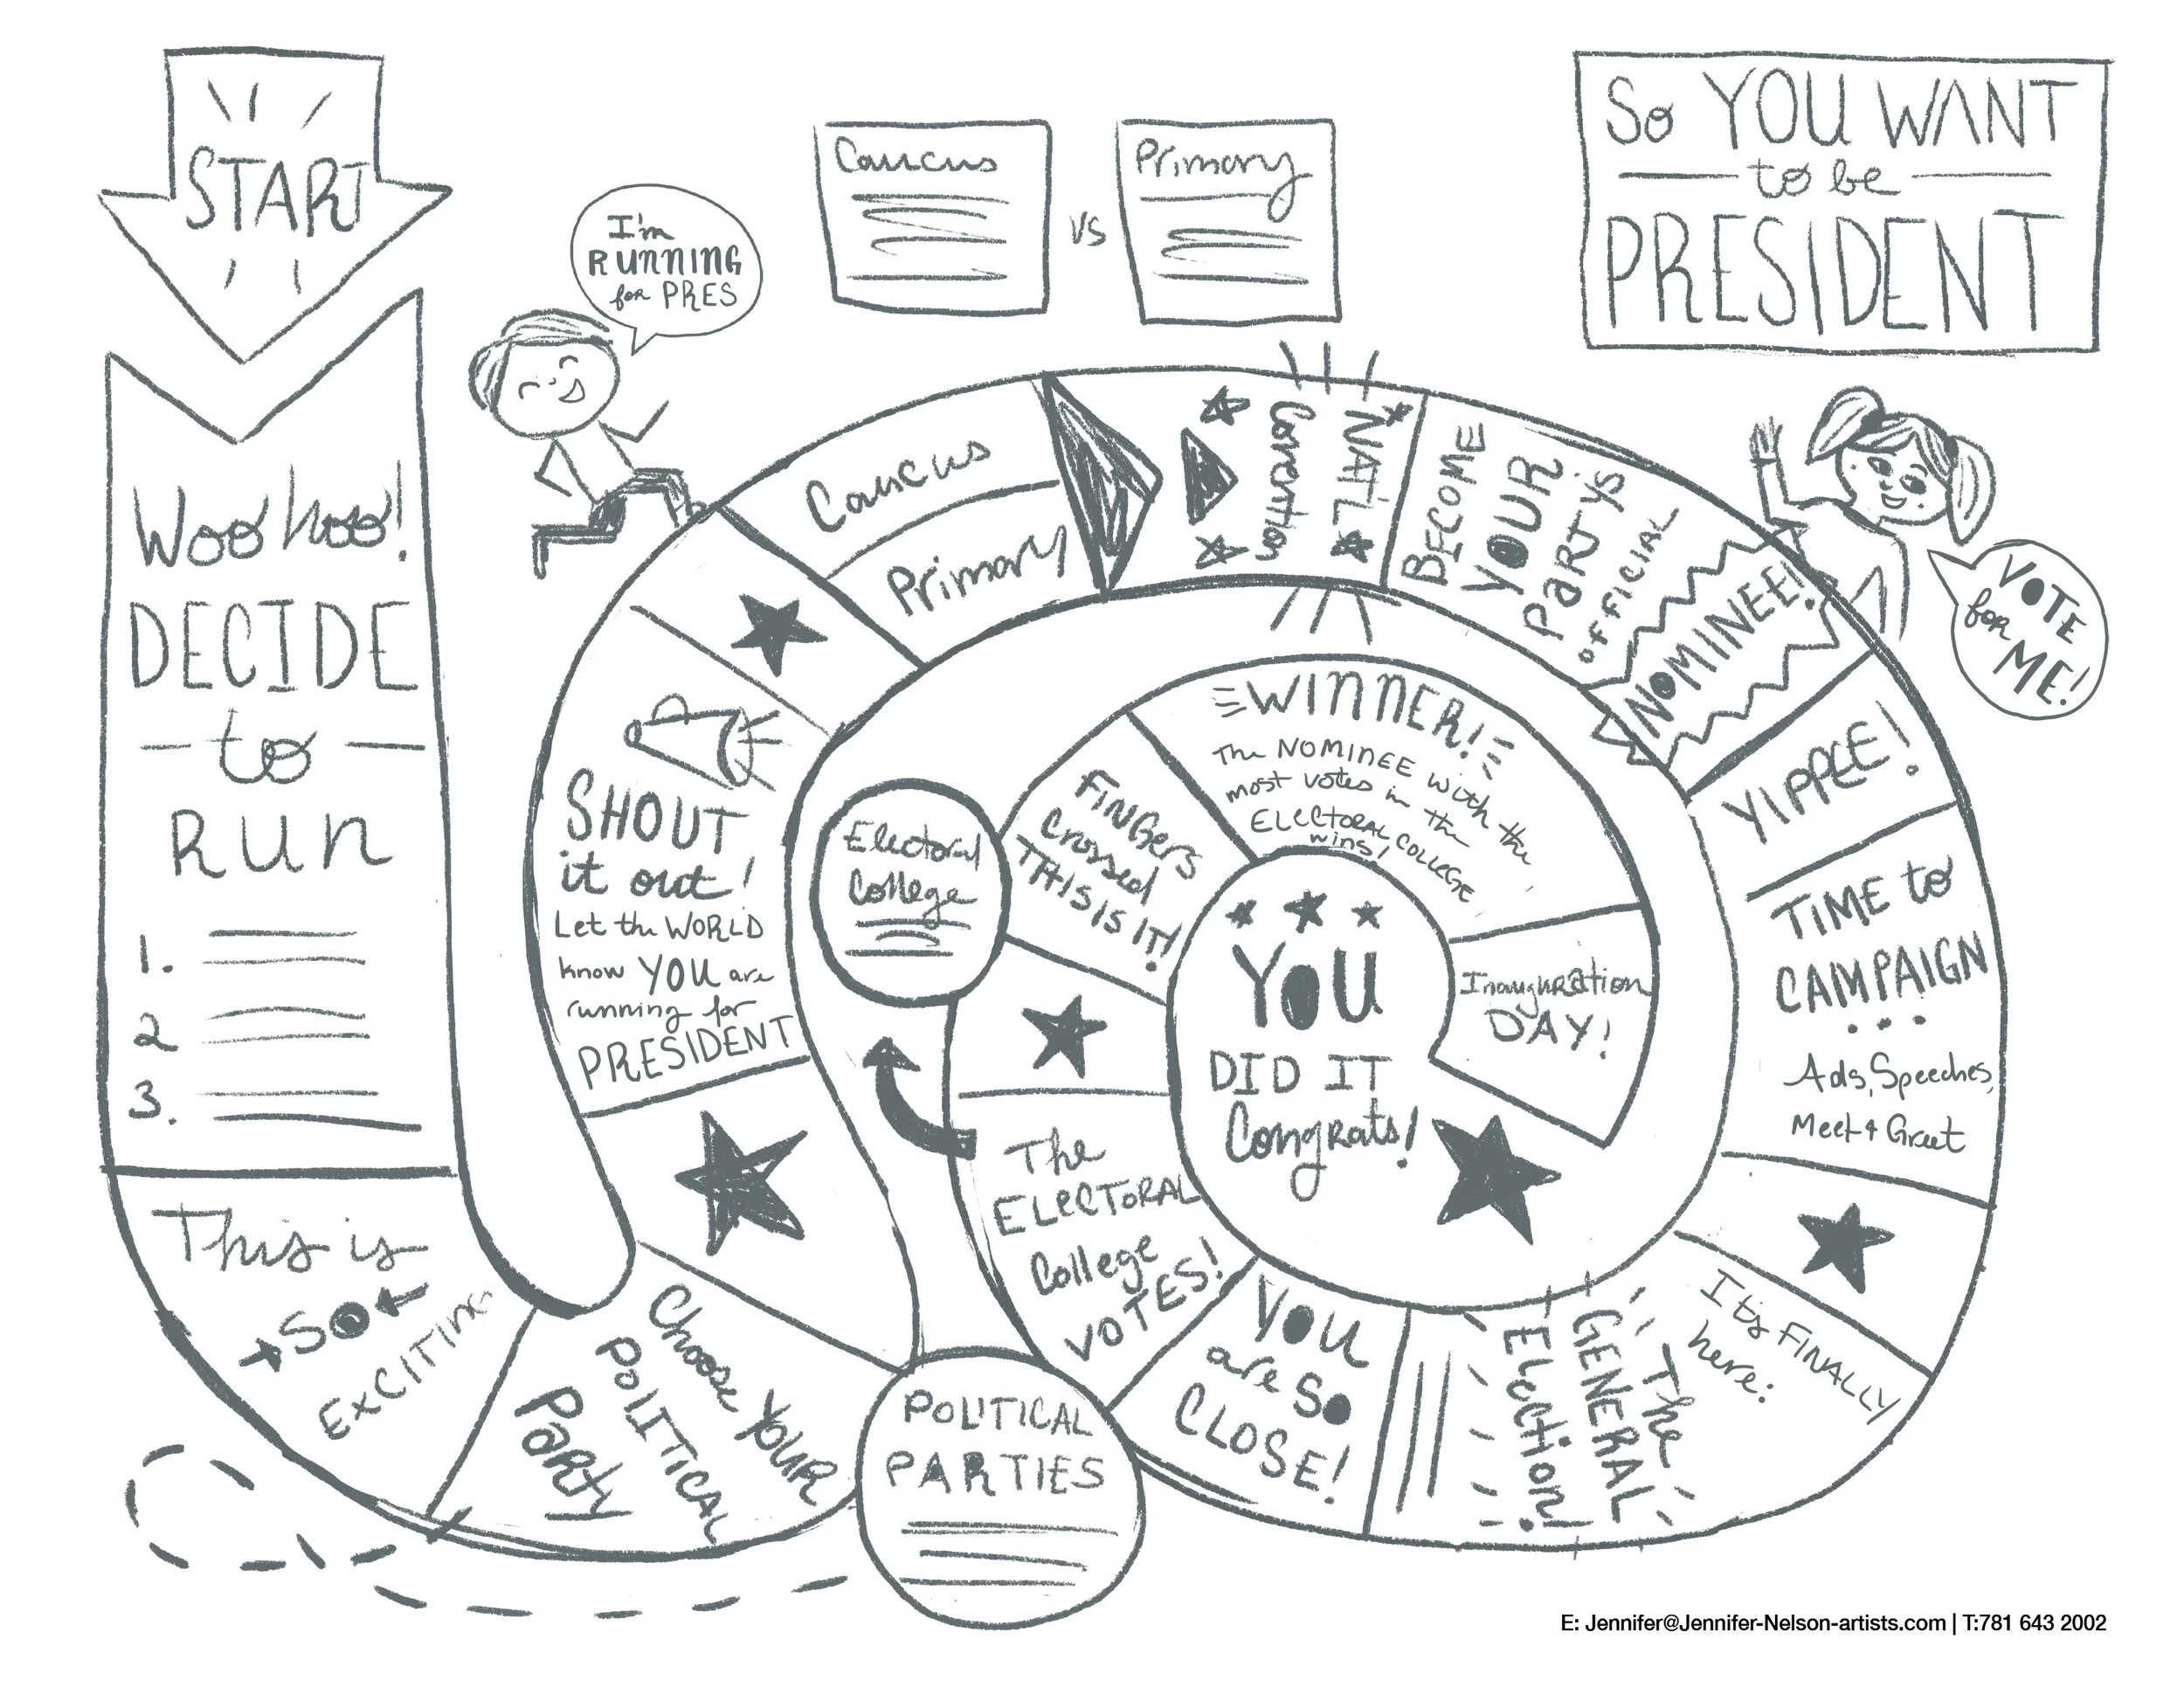 START
Woo hoo!
DECIDE
to
RUN
1.
2
3.
This is
SO
EXCITING
Choose YOUR
POLITICAL
PARTY
POLITICAL
PARTIES
SHOUT
it out!
Let the WORLD
know YOU are
running for
PRESIDENT
I'm
RUNNING
for PRES
Caucus
Primary
Caucus
VS
Primary
NAT'L
Convention
BECOME
YOUR
PARTYS
OFFICIAL
NOMINEE!
So YOU WANT
to be
PRESIDENT
VOTE
for
ME!
YIPPEE!
TIME to
CAMPAIGN
...
Ads, Speeches,
Meet & Greet
It's FINALLY
here:
The
GENERAL
Election!
YOU
are SO
CLOSE!
The
ELECTORAL
College
VOTES!
Electoral
College
FINGERS
crossed
THIS IS IT!
WINNER!
The NOMINEE with the
most votes in the
ELECTORAL COLLEGE
wins!
Inauguration
DAY!
YOU
DID IT
Congrats!
E: Jennifer@Jennifer-Nelson-artists.com | T:781 643 2002